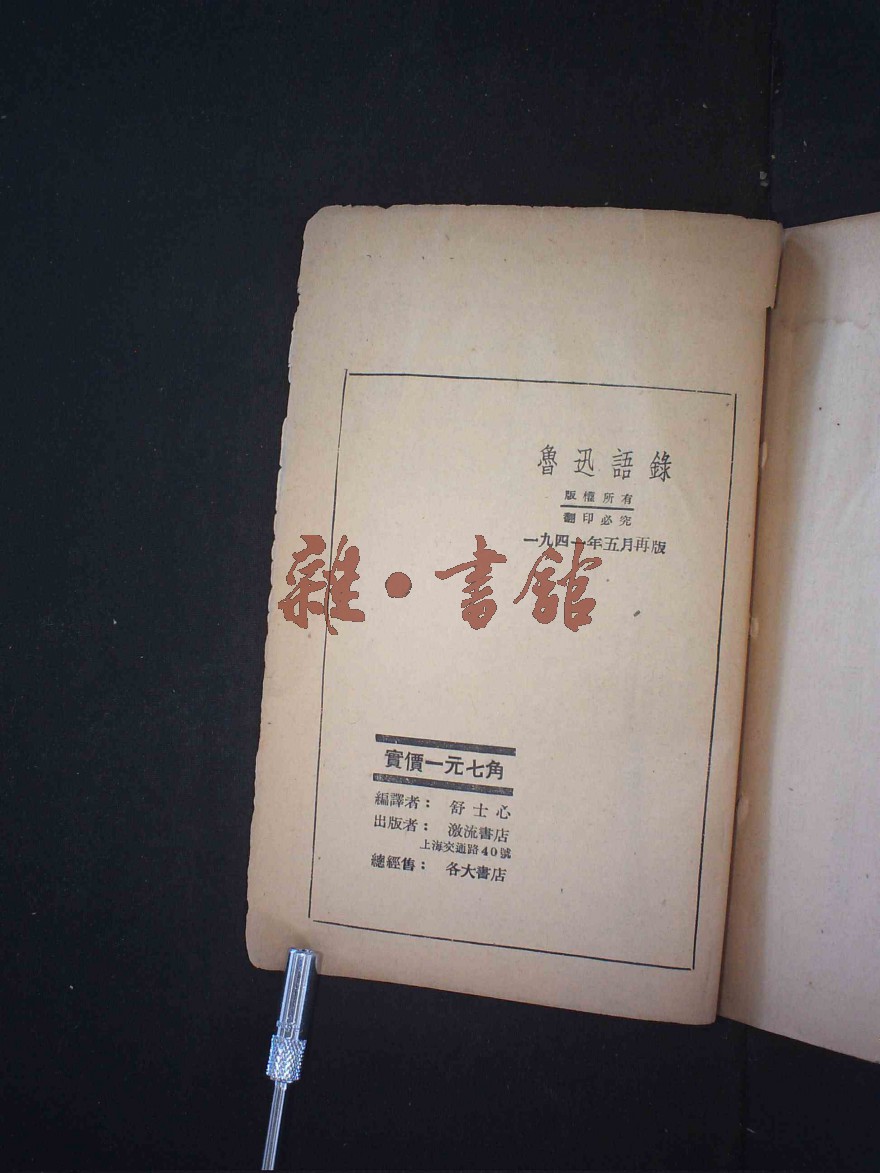 魯迅語錄
版權所有
翻印必究
一九四一年五月再版
雜·書館
實價一元七角
編譯者：舒士心
出版者：激流書店
上海交通路40號
總經售：各大書店